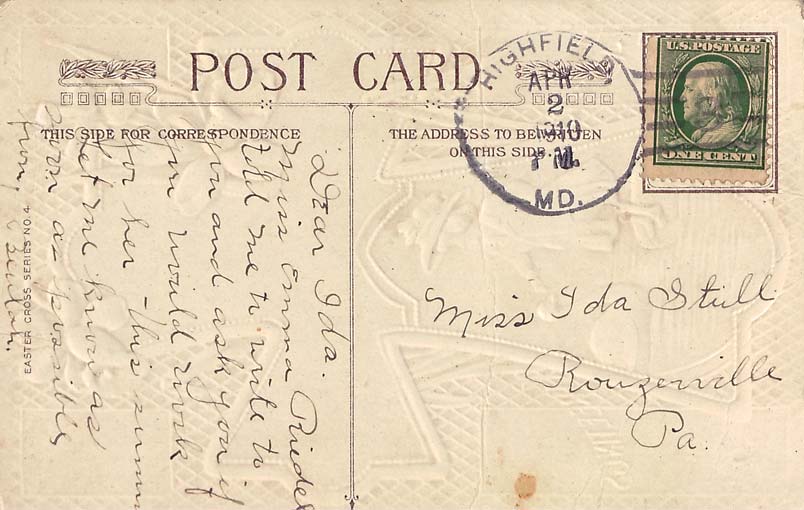 POST CARD
THIS SIDE FOR CORRESPONDENCE
THE ADDRESS TO BE WRITTEN
ON THIS SIDE.
HIGHFIELD
APR
2
1910
P M.
MD.
U.S. POSTAGE
ONE CENT
Dear Ida.
Miss Emma Riedel
told me to write to
you and ask you if
you would work
for her - this summ
Let me know as
soon as possible
from,
Miss Ida Still
Rouzerville
Pa.
EASTER CROSS SERIES NO. 4.